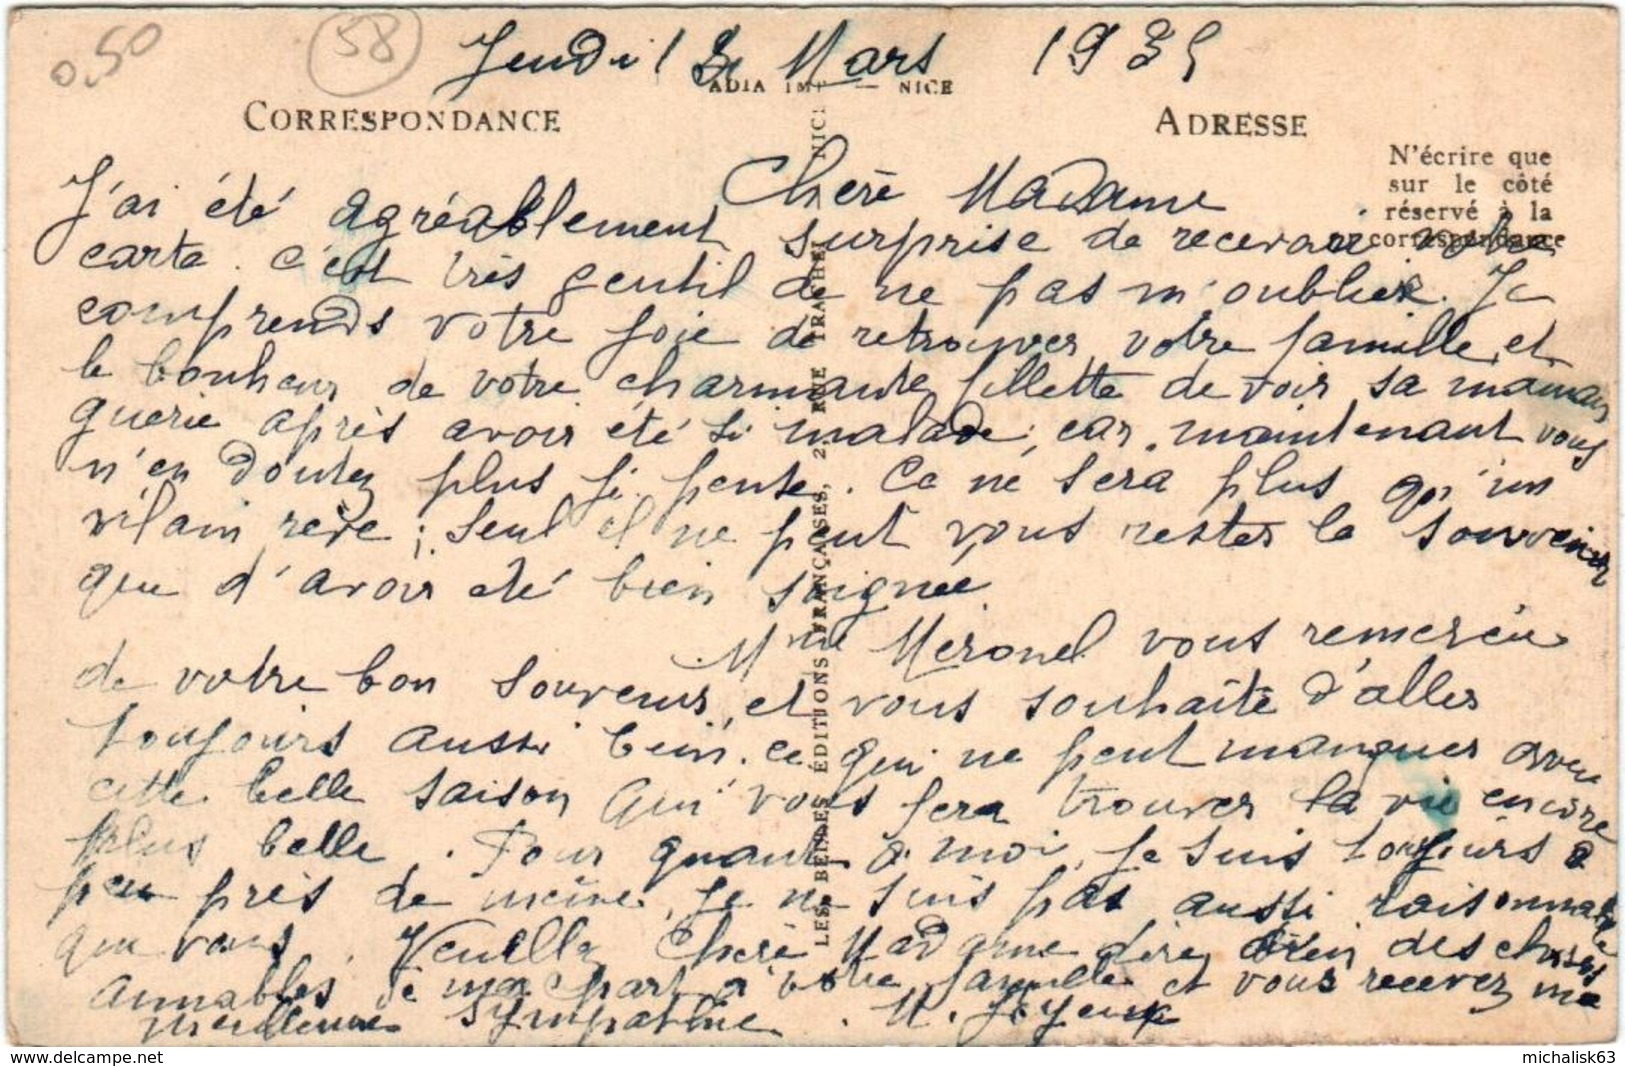 0.50
58
Jeudi 1 Mars 1935
ADIA IMP — NICE
CORRESPONDANCE
ADRESSE
N'écrire que
sur le côté
réservé à la
correspondance
Chère Madame
J'ai été agréablement surprise de recevoir votre
carte. C'est très gentil de ne pas m'oublier. Je
comprends votre joie de retrouver votre famille, et
le bonheur de votre charmante fillette de voir sa maman
guerie après avoir été si malade, car maintenant vous
n'en doutez plus je pense. Ce ne sera plus qu'un
vilain reve ; seul il ne peut vous rester le souvenir
que d'avoir été bien soignée
Mme Meronel vous remercie
de votre bon souvenir, et vous souhaite d'aller
toujours aussi bien, ce qui ne peut manquer avec
cette belle saison qui vous fera trouver la vie encore
plus belle. Pour quant à moi, je suis toujours à
peu près de même, je ne suis pas aussi raisonnable
que vous. Veuillez Chère Madame dire bien des choses
aimables de ma part à votre famille et vous recevez me
meilleures sympathie. M. Joyeux
LES BELLES ÉDITIONS FRANÇAISES, 2 RUE TRACHEL NICE
michalisk63
www.delcampe.net